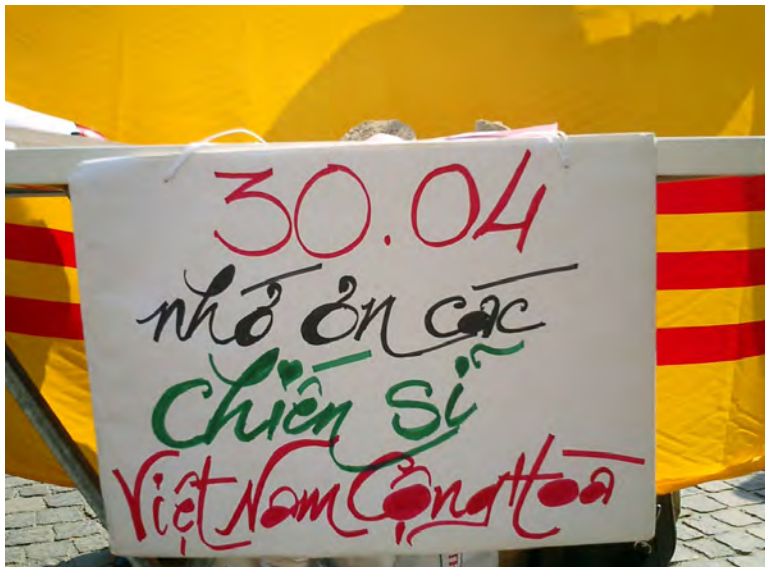 30.04
nhớ ơn các
chiến sĩ
Việt Nam Cộng Hoà